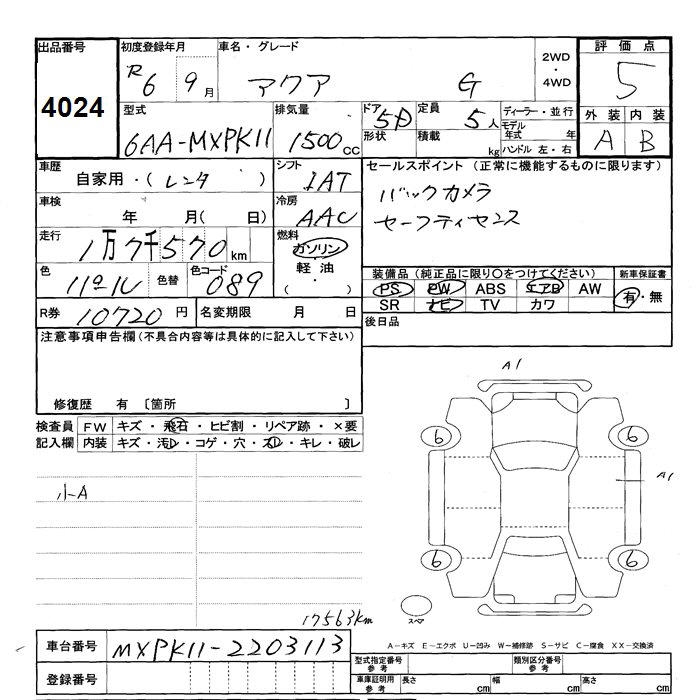 出品番号 初度登録年月 車名・グレード 2WD・4WD 評価点
4024 R6 9月 アクア G 5
型式 排気量 ドア 5D 形状 定員 5人 積載 kg ディーラー・並行 モデル年式 年 ハンドル 左・右 外装 内装
6AA-MXPK11 1500cc A B
車歴 自家用・(レンタ) シフト IAT セールスポイント (正常に機能するものに限ります)
車検 年 月( 日) 冷房 AAC バックカメラ
走行 1万7千570km 燃料 ガソリン セーフティセンス
軽油
( ・ )
色 パール 色替 色コード 089 装備品 (純正品に限り○をつけてください) 新車保証書
PS PW ABS エアB AW 有・無
SR ナビ TV カワ
R券 10720円 名変期限 月 日 後日品
注意事項申告欄(不具合内容等は具体的に記入して下さい)
修復歴 有 〔箇所 〕
検査員 FW キズ・飛石・ヒビ割・リペア跡・×要
記入欄 内装 キズ・汚レ・コゲ・穴・スレ・キレ・破レ
A1
6 6
A1
小A
6 6
スペア
17563km
A-キズ E-エクボ U-凹み W-補修跡 S-サビ C-腐食 XX-交換済
車台番号 MXPK11-2203113
型式指定番号 参考 類別区分番号 参考
登録番号 車庫証明用 参考 長さ cm 幅 cm 高さ cm